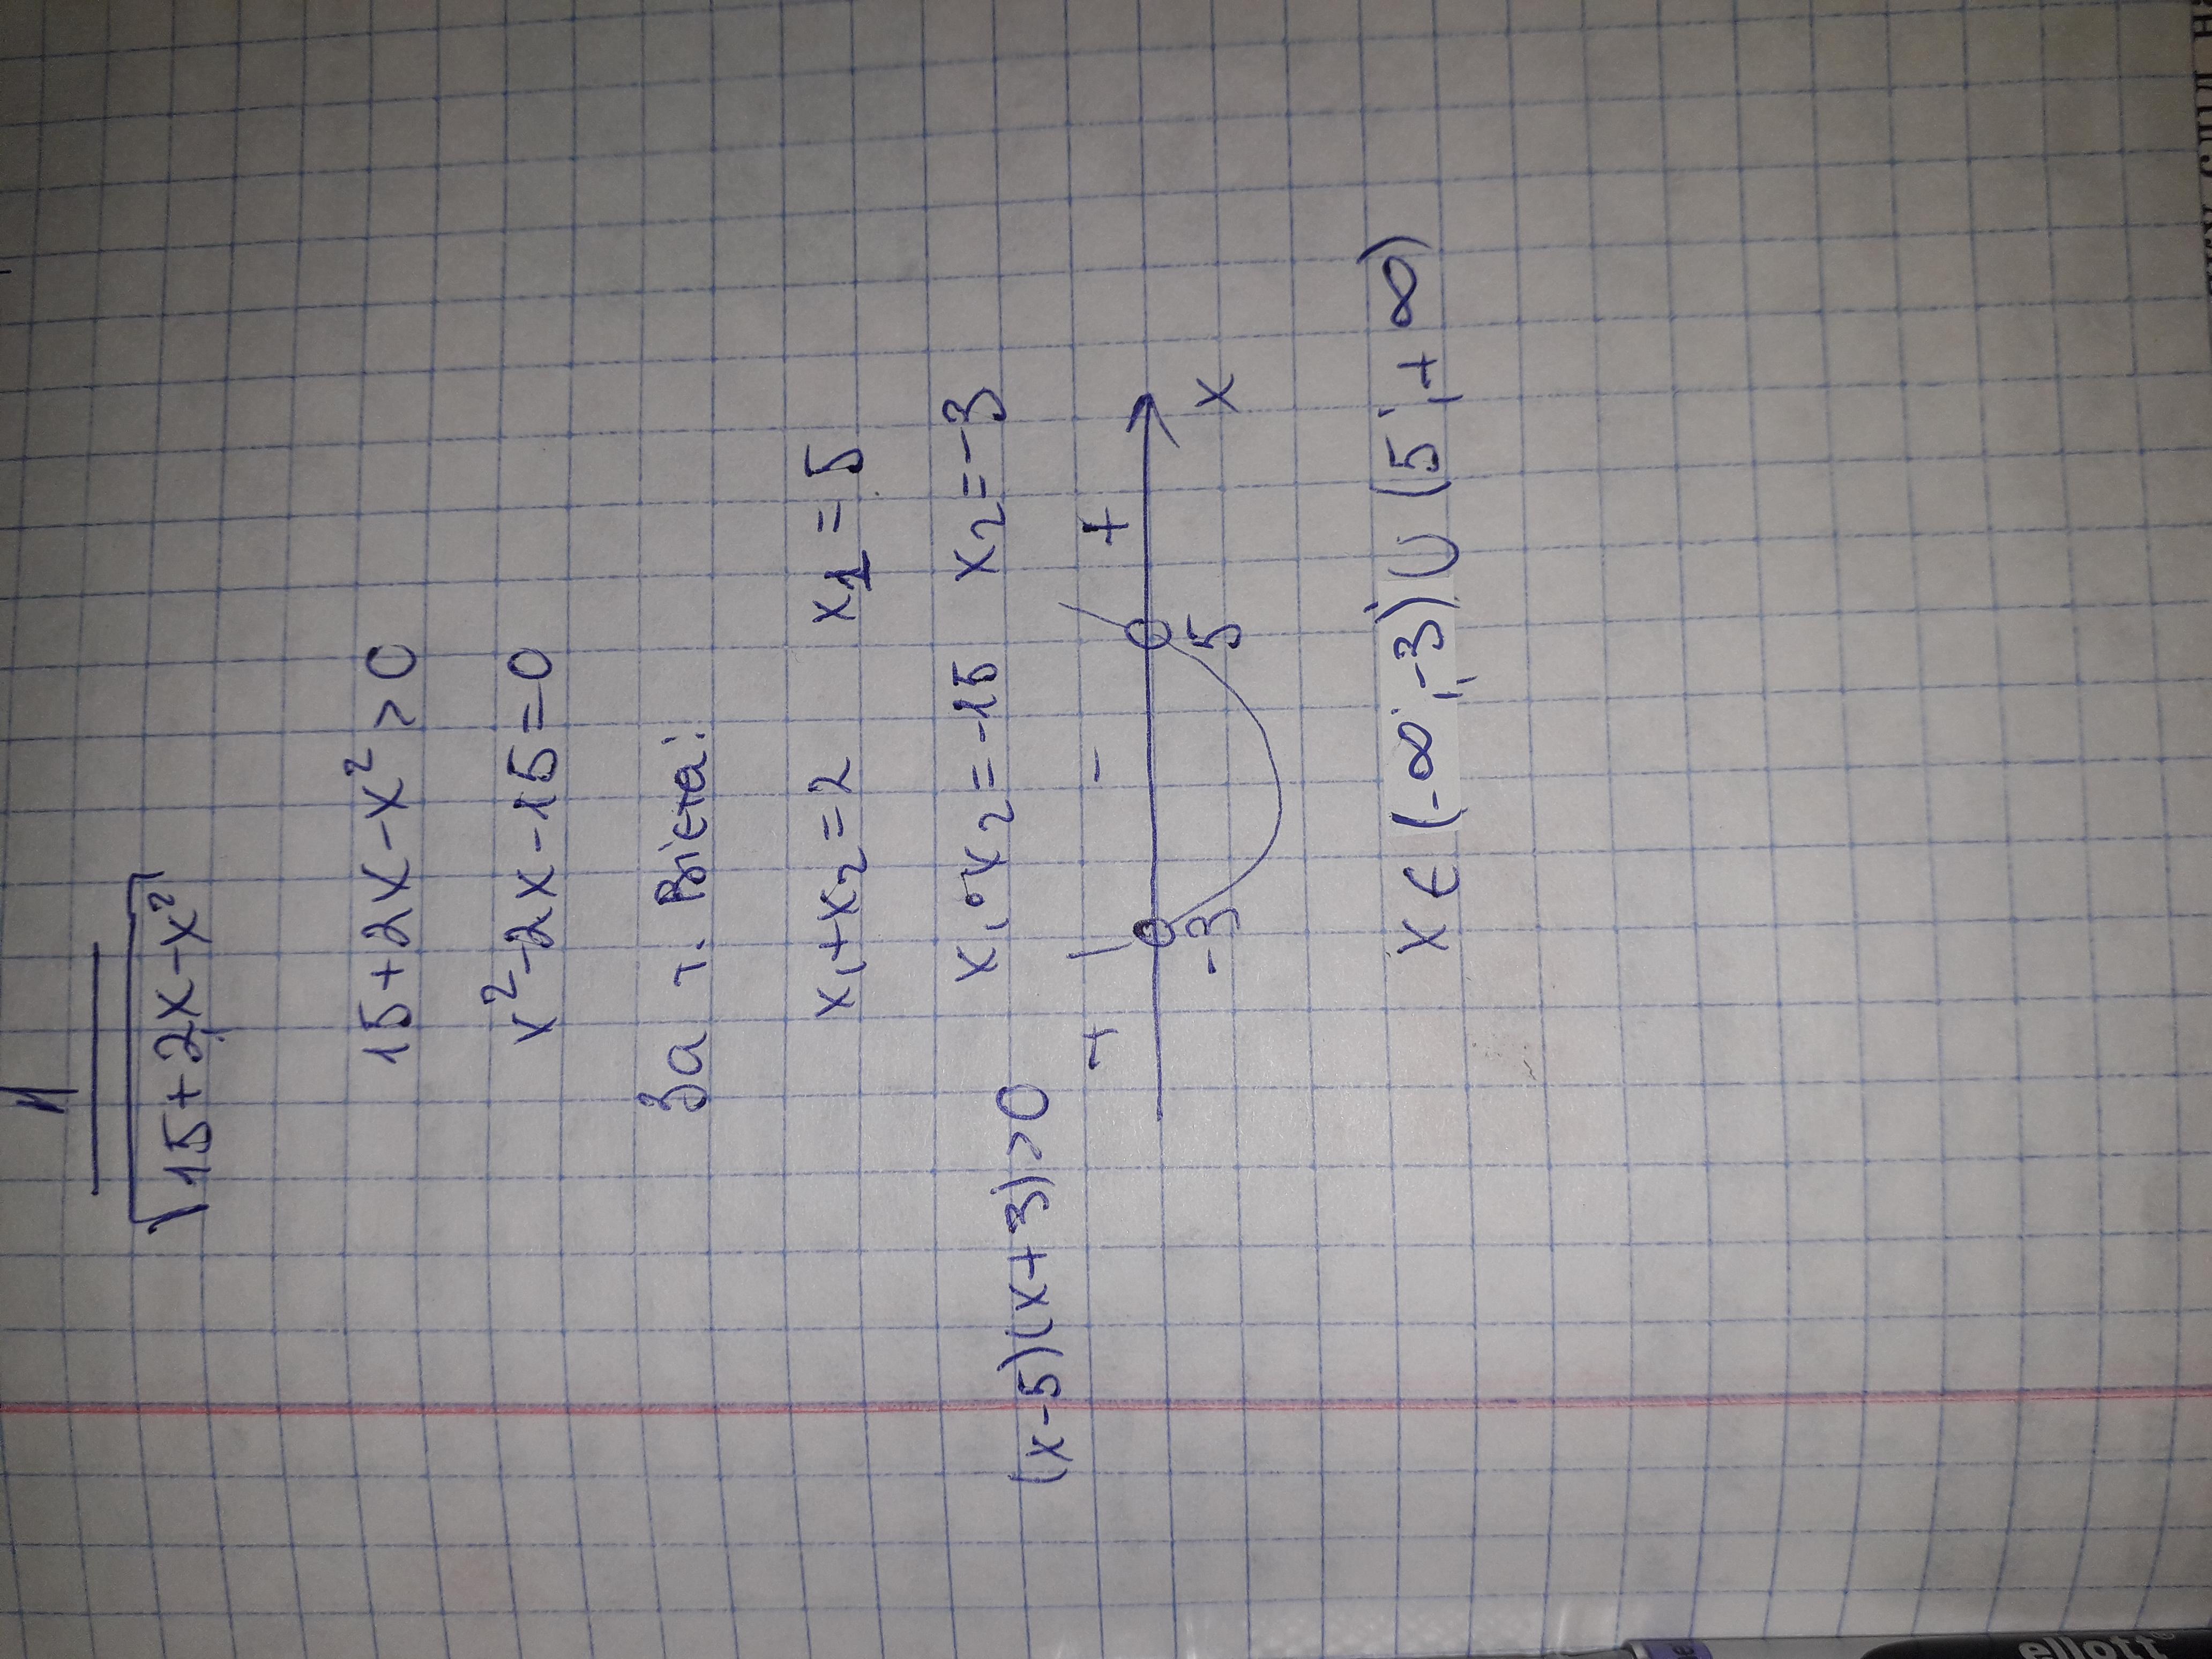 1
√15+2x-x²
15+2x-x²>0
x²-2x-15=0
За т. Вієта:
x₁+x₂=2 x₁=5
x₁∘x₂=-15 x₂=-3
(x-5)(x+3)>0
+ - +
-3 5 x
x∈(-∞;-3)∪(5;+∞)
ellott